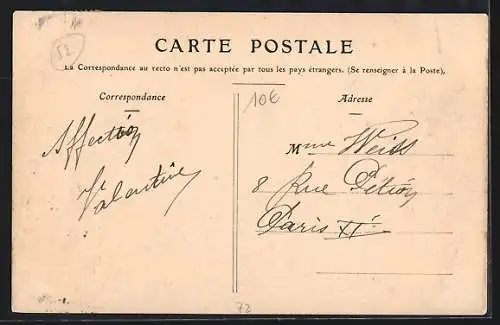 52
CARTE POSTALE
La Correspondance au recto n'est pas acceptée par tous les pays étrangers. (Se renseigner à la Poste).
Correspondance
Affection
Valentine
10€
Adresse
Mme Weiss
8 Rue Pétion
Paris XIe
72